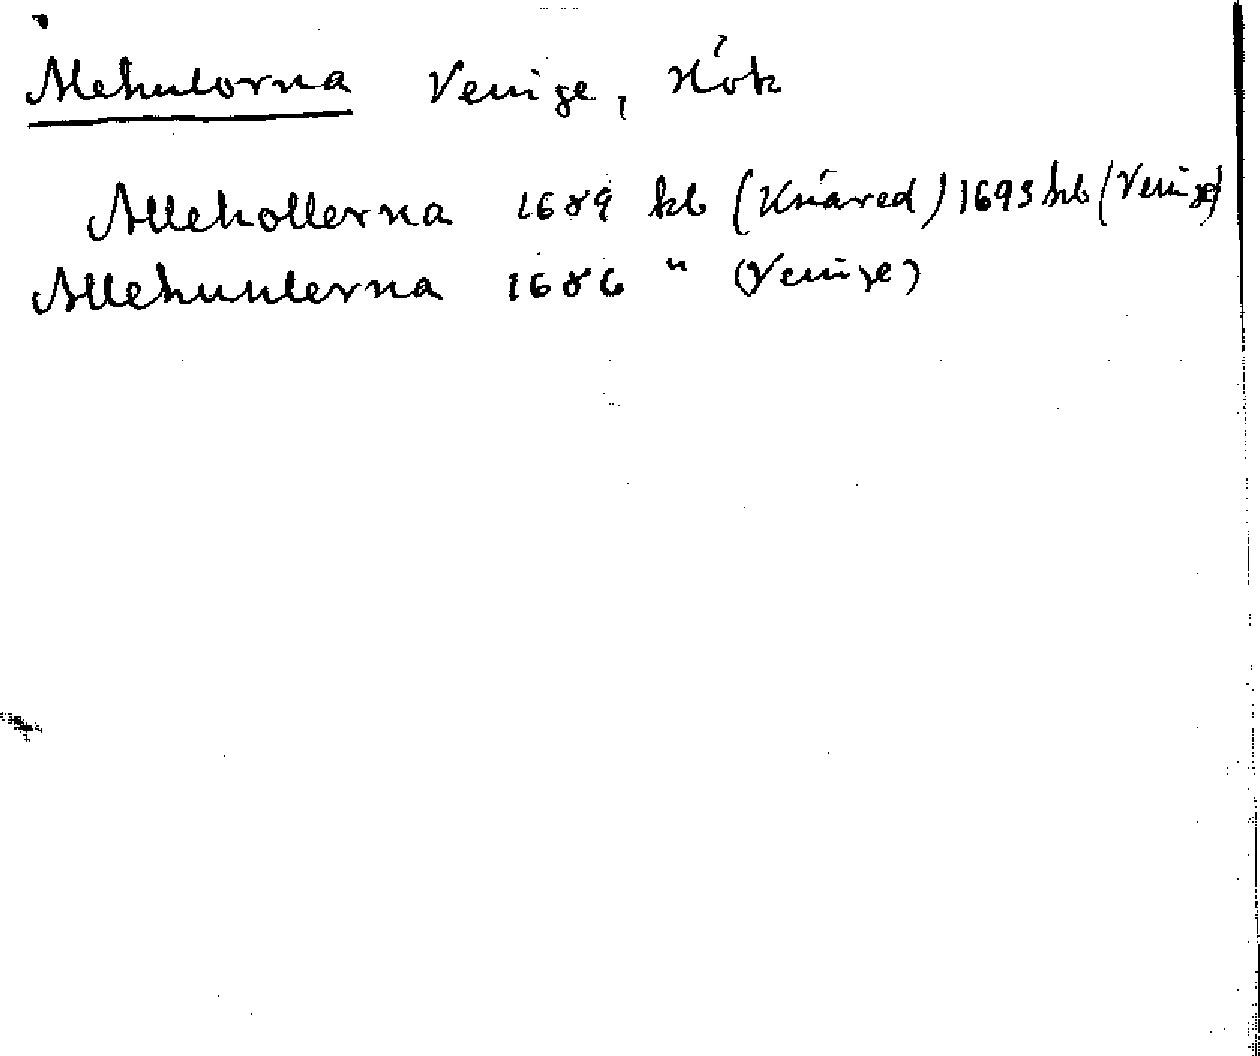 Alehulorna Veinge, Hök
Allehollerna 1689 kb (Knäred) 1693 kb (Veinge)
Allehuulerna 1686 " (Veinge)